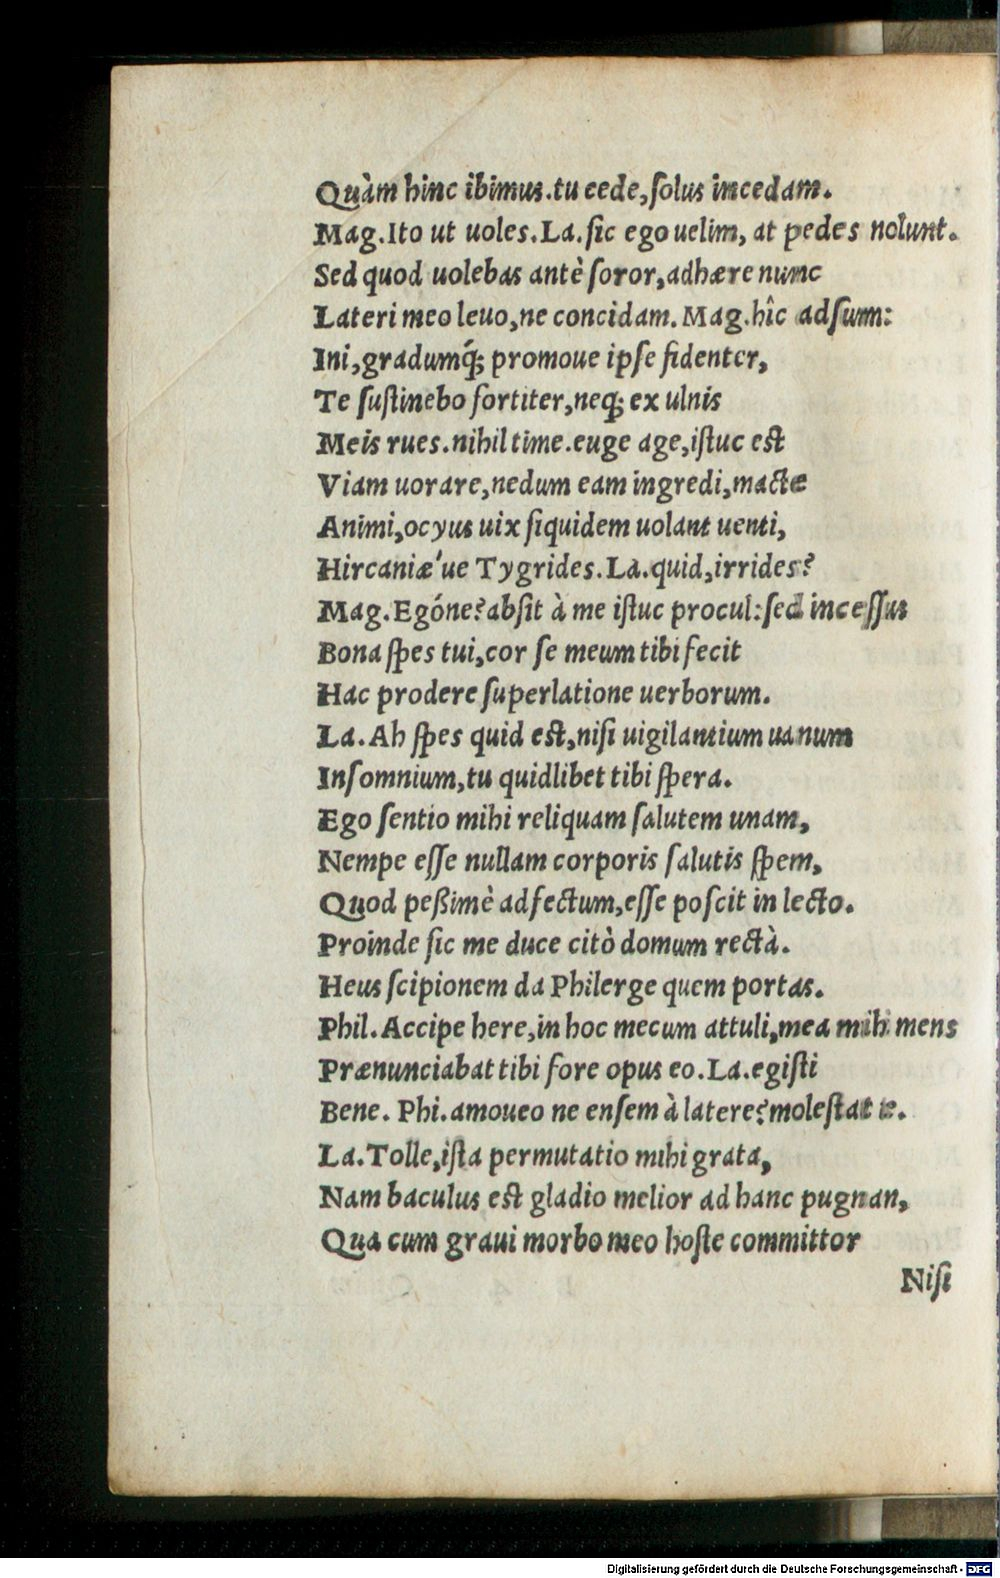 Quàm hinc ibimus.tu cede,ſolus incedam.
Mag.Ito ut uoles.La.ſic ego uelim, at pedes nolunt.
Sed quod uolebas antè ſoror,adhære nunc
Lateri meo leuo,ne concidam.Mag.hîc adſum:
Ini,gradumq́; promoue ipſe fidenter,
Te ſuſtinebo fortiter,neq; ex ulnis
Meis rues.nihil time.euge age,iſtuc eſt
Viam uorare,nedum eam ingredi,mactæ
Animi,ocyus uix ſiquidem uolant uenti,
Hircaniæ'ue Tygrides.La.quid,irrides?
Mag.Egóne?abſit à me iſtuc procul:ſed inceſſus
Bona ſpes tui,cor ſe meum tibi fecit
Hac prodere ſuperlatione uerborum.
La.Ah ſpes quid eſt,niſi uigilantium uanum
Inſomnium,tu quidlibet tibi ſpera.
Ego ſentio mihi reliquam ſalutem unam,
Nempe eſſe nullam corporis ſalutis ſpem,
Quod peßimè adfectum,eſſe poſcit in lecto.
Proinde ſic me duce citò domum rectà.
Heus ſcipionem da Philerge quem portas.
Phil.Accipe here,in hoc mecum attuli,mea mihi mens
Prænunciabat tibi fore opus eo.La.egiſti
Bene. Phi.amoueo ne enſem à latere?moleſtat te.
La.Tolle,iſta permutatio mihi grata,
Nam baculus eſt gladio melior ad hanc pugnan,
Qua cum graui morbo meo hoſte committor
Niſi
Digitalisierung gefördert durch die Deutsche Forschungsgemeinschaft - DFG